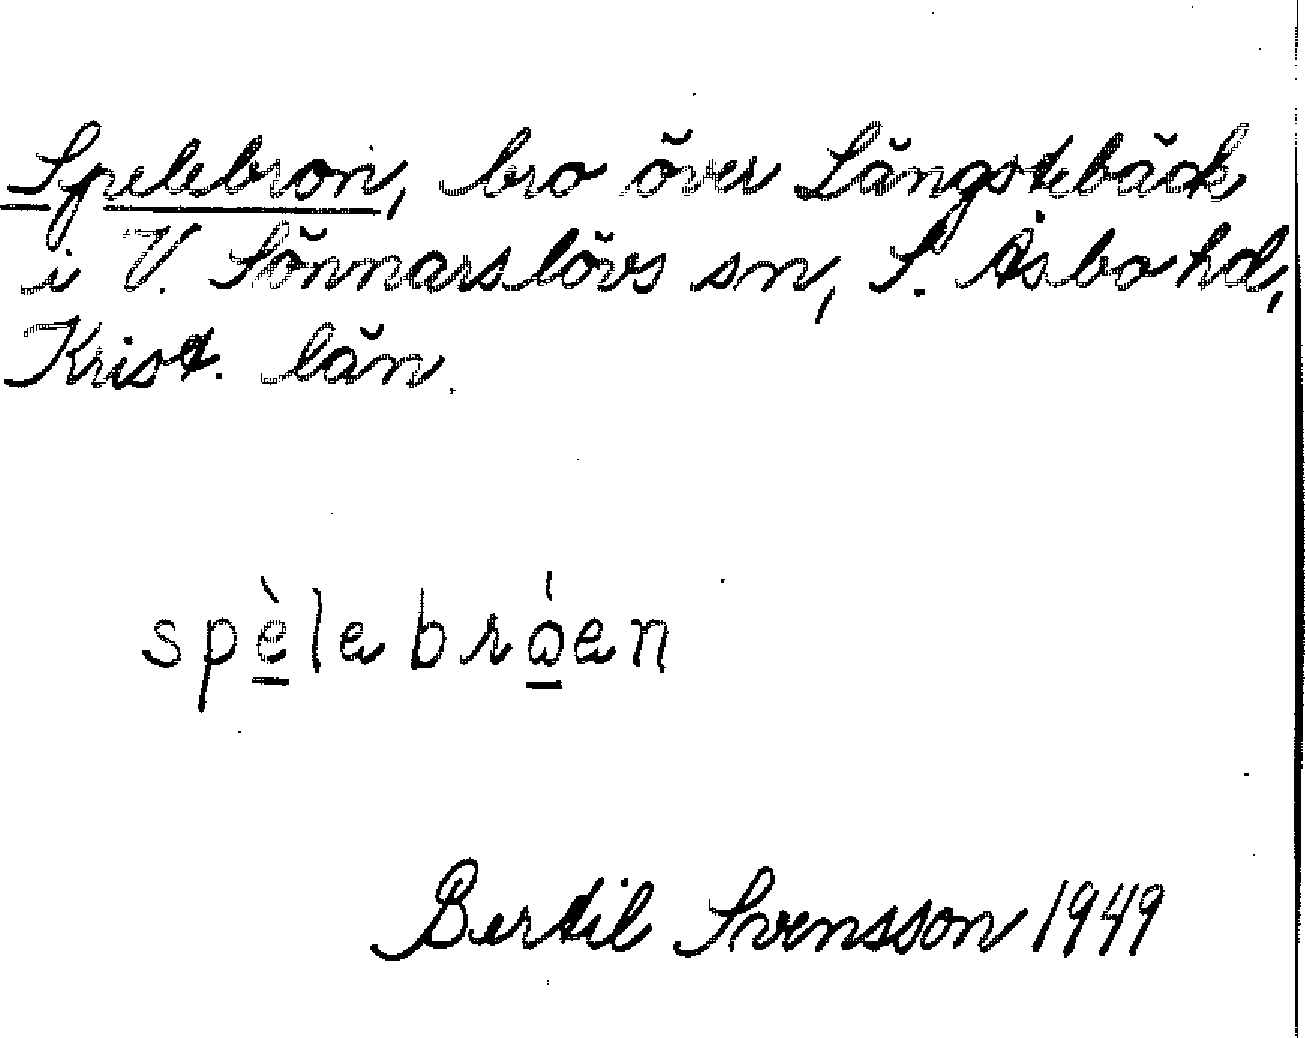 Spelebron, bro över Långstebäck
i V. Sönnarslövs sn, S. Åsbo hd,
Krist. län.
spèlebråen
Bertil Svensson 1949